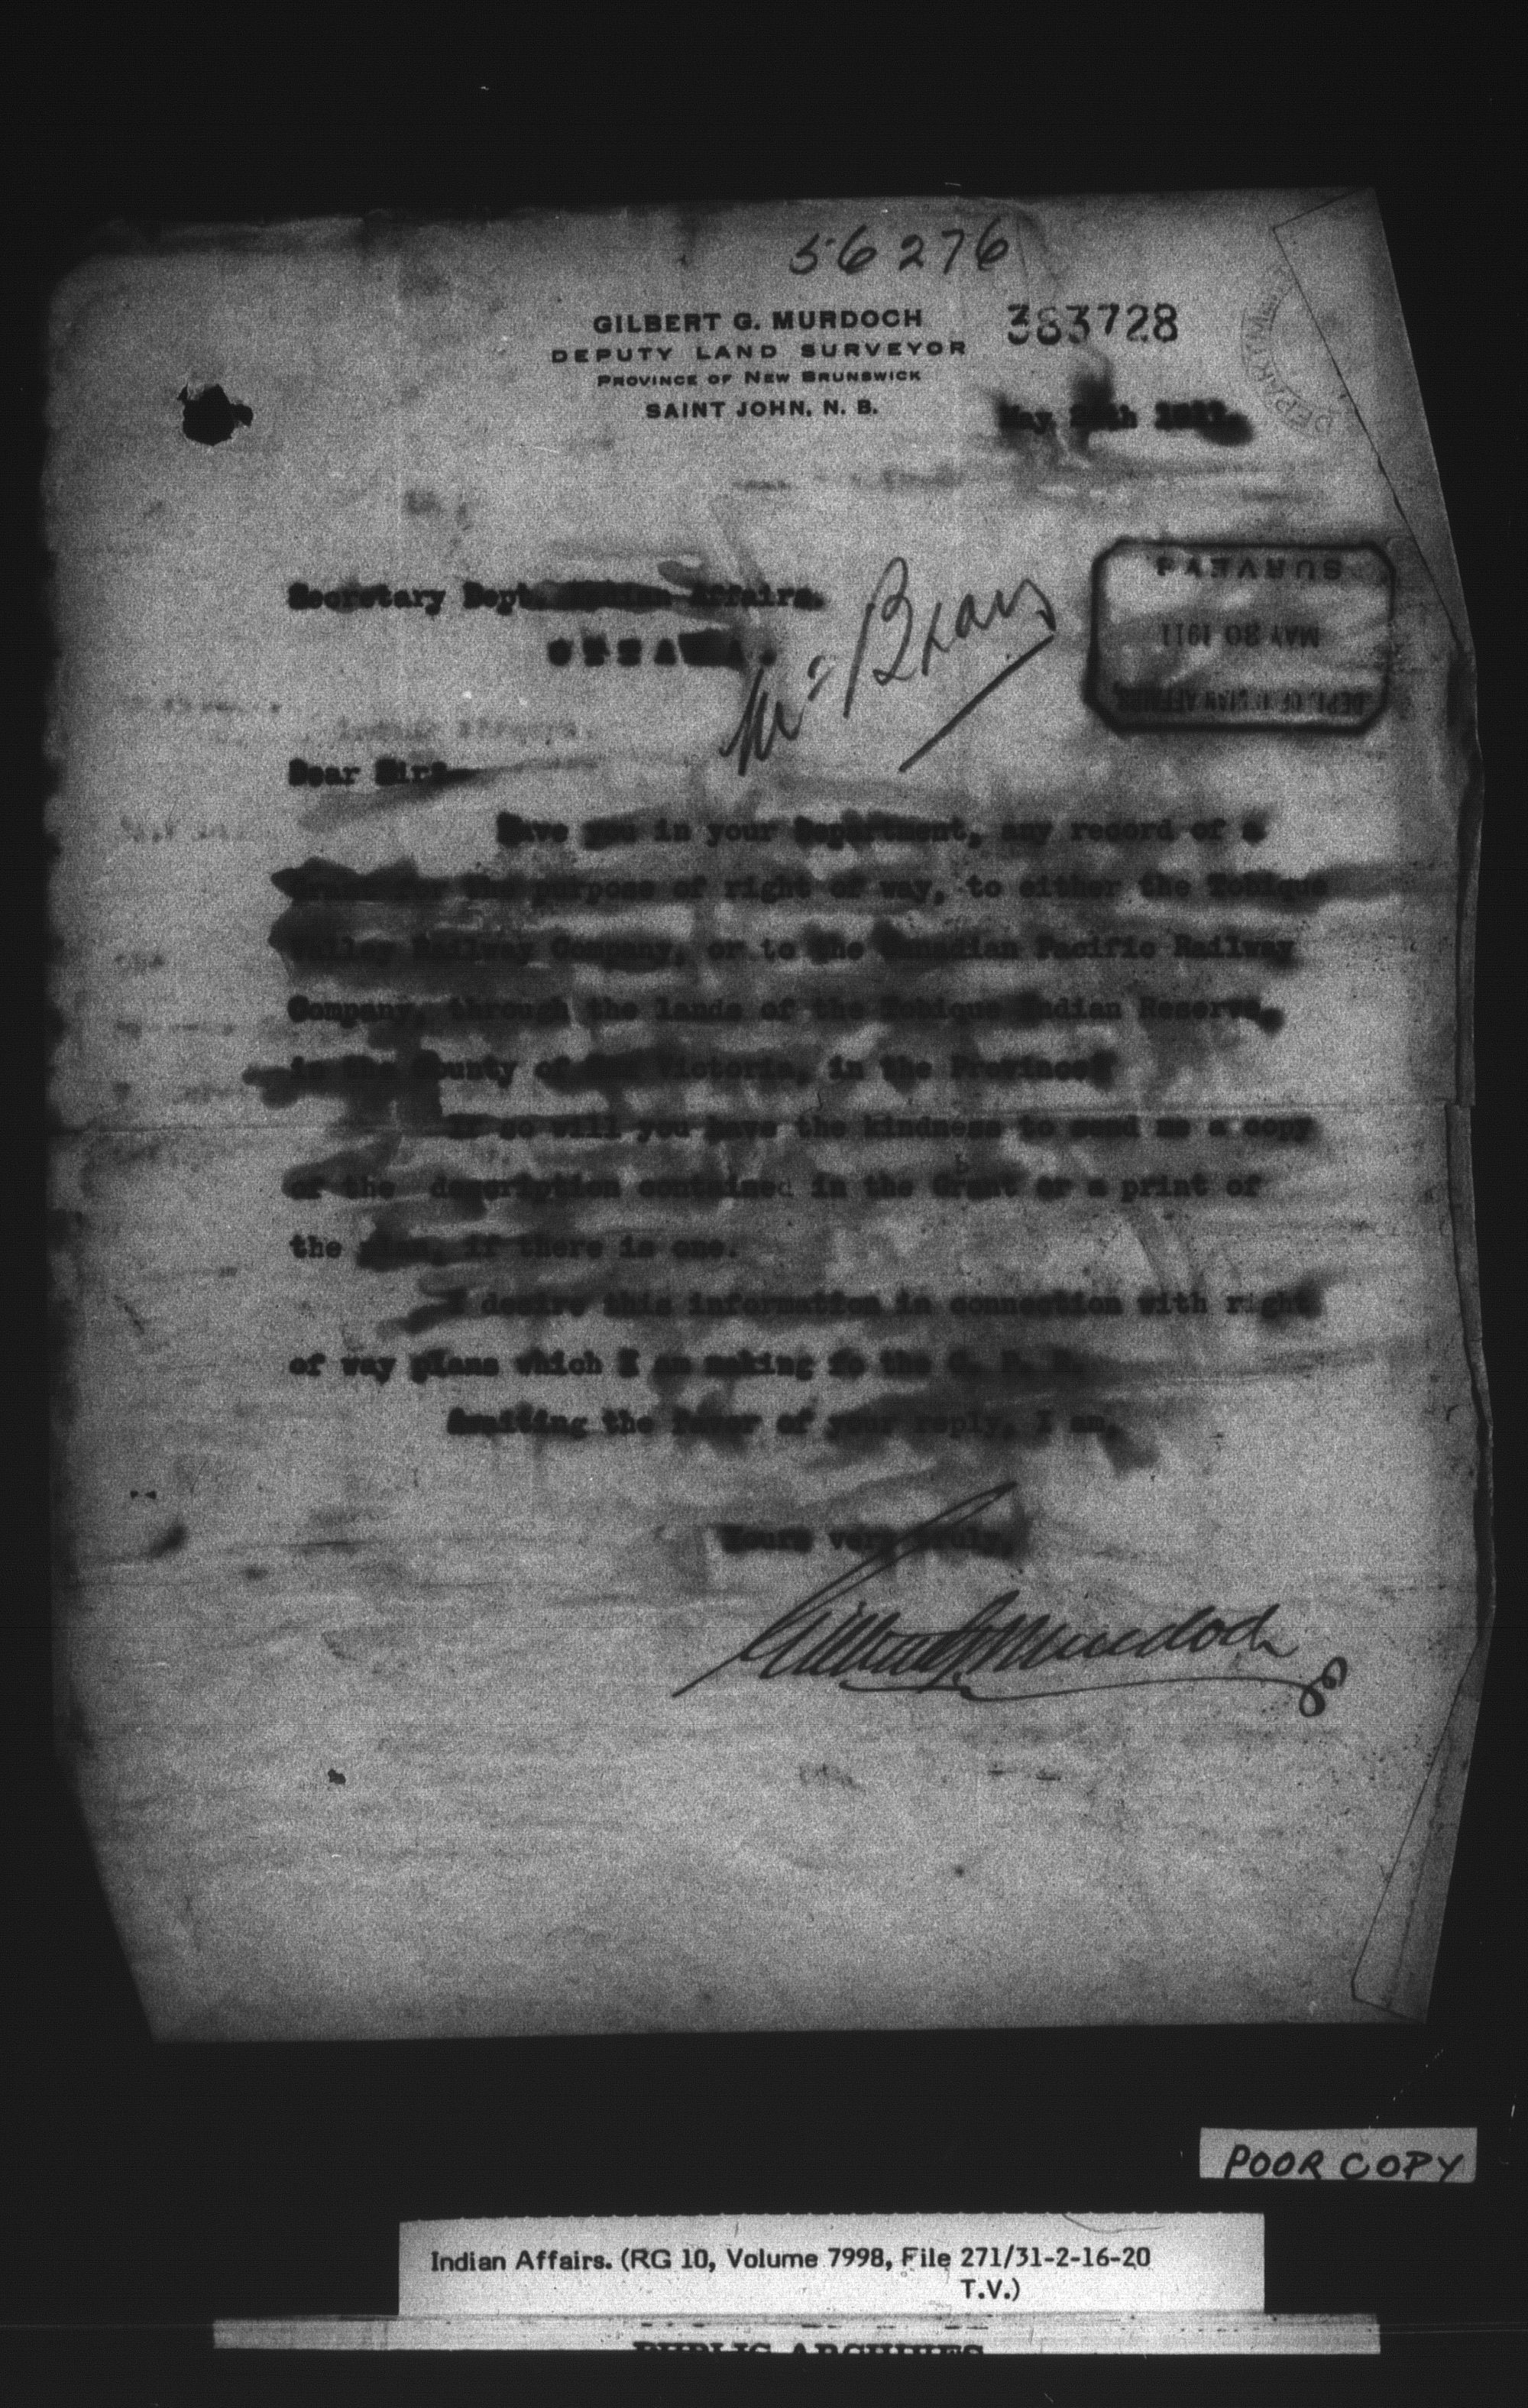 56276
GILBERT G. MURDOCH
DEPUTY LAND SURVEYOR
PROVINCE OF NEW BRUNSWICK
SAINT JOHN, N. B.
383728
May th 1911.
Secretary Dept. Indian Affairs.
OTTAWA.
Mr
SURVEYS
MAY 30 1911
DEPT. OF INDIAN AFFAIRS
Dear Sir:-
Have you in your Department, any record of a
Grant for the purpose of right of way, to either the Tobique
Valley Railway Company, or to the Canadian Pacific Railway
Company, through the lands of the Tobique Indian Reserve,
in the County of Victoria, in the Province?
If so will you have the kindness to send me a copy
of the description contained in the Grant or a print of
the plan, if there is one.
I desire this information in connection with right
of way plans which I am making fo the C. P. R.
Awaiting the favor of your reply, I am,
Yours very truly,
Gilbert G. Murdoch
POOR COPY
Indian Affairs. (RG 10, Volume 7998, File 271/31-2-16-20
T.V.)
PUBLIC ARCHIVES